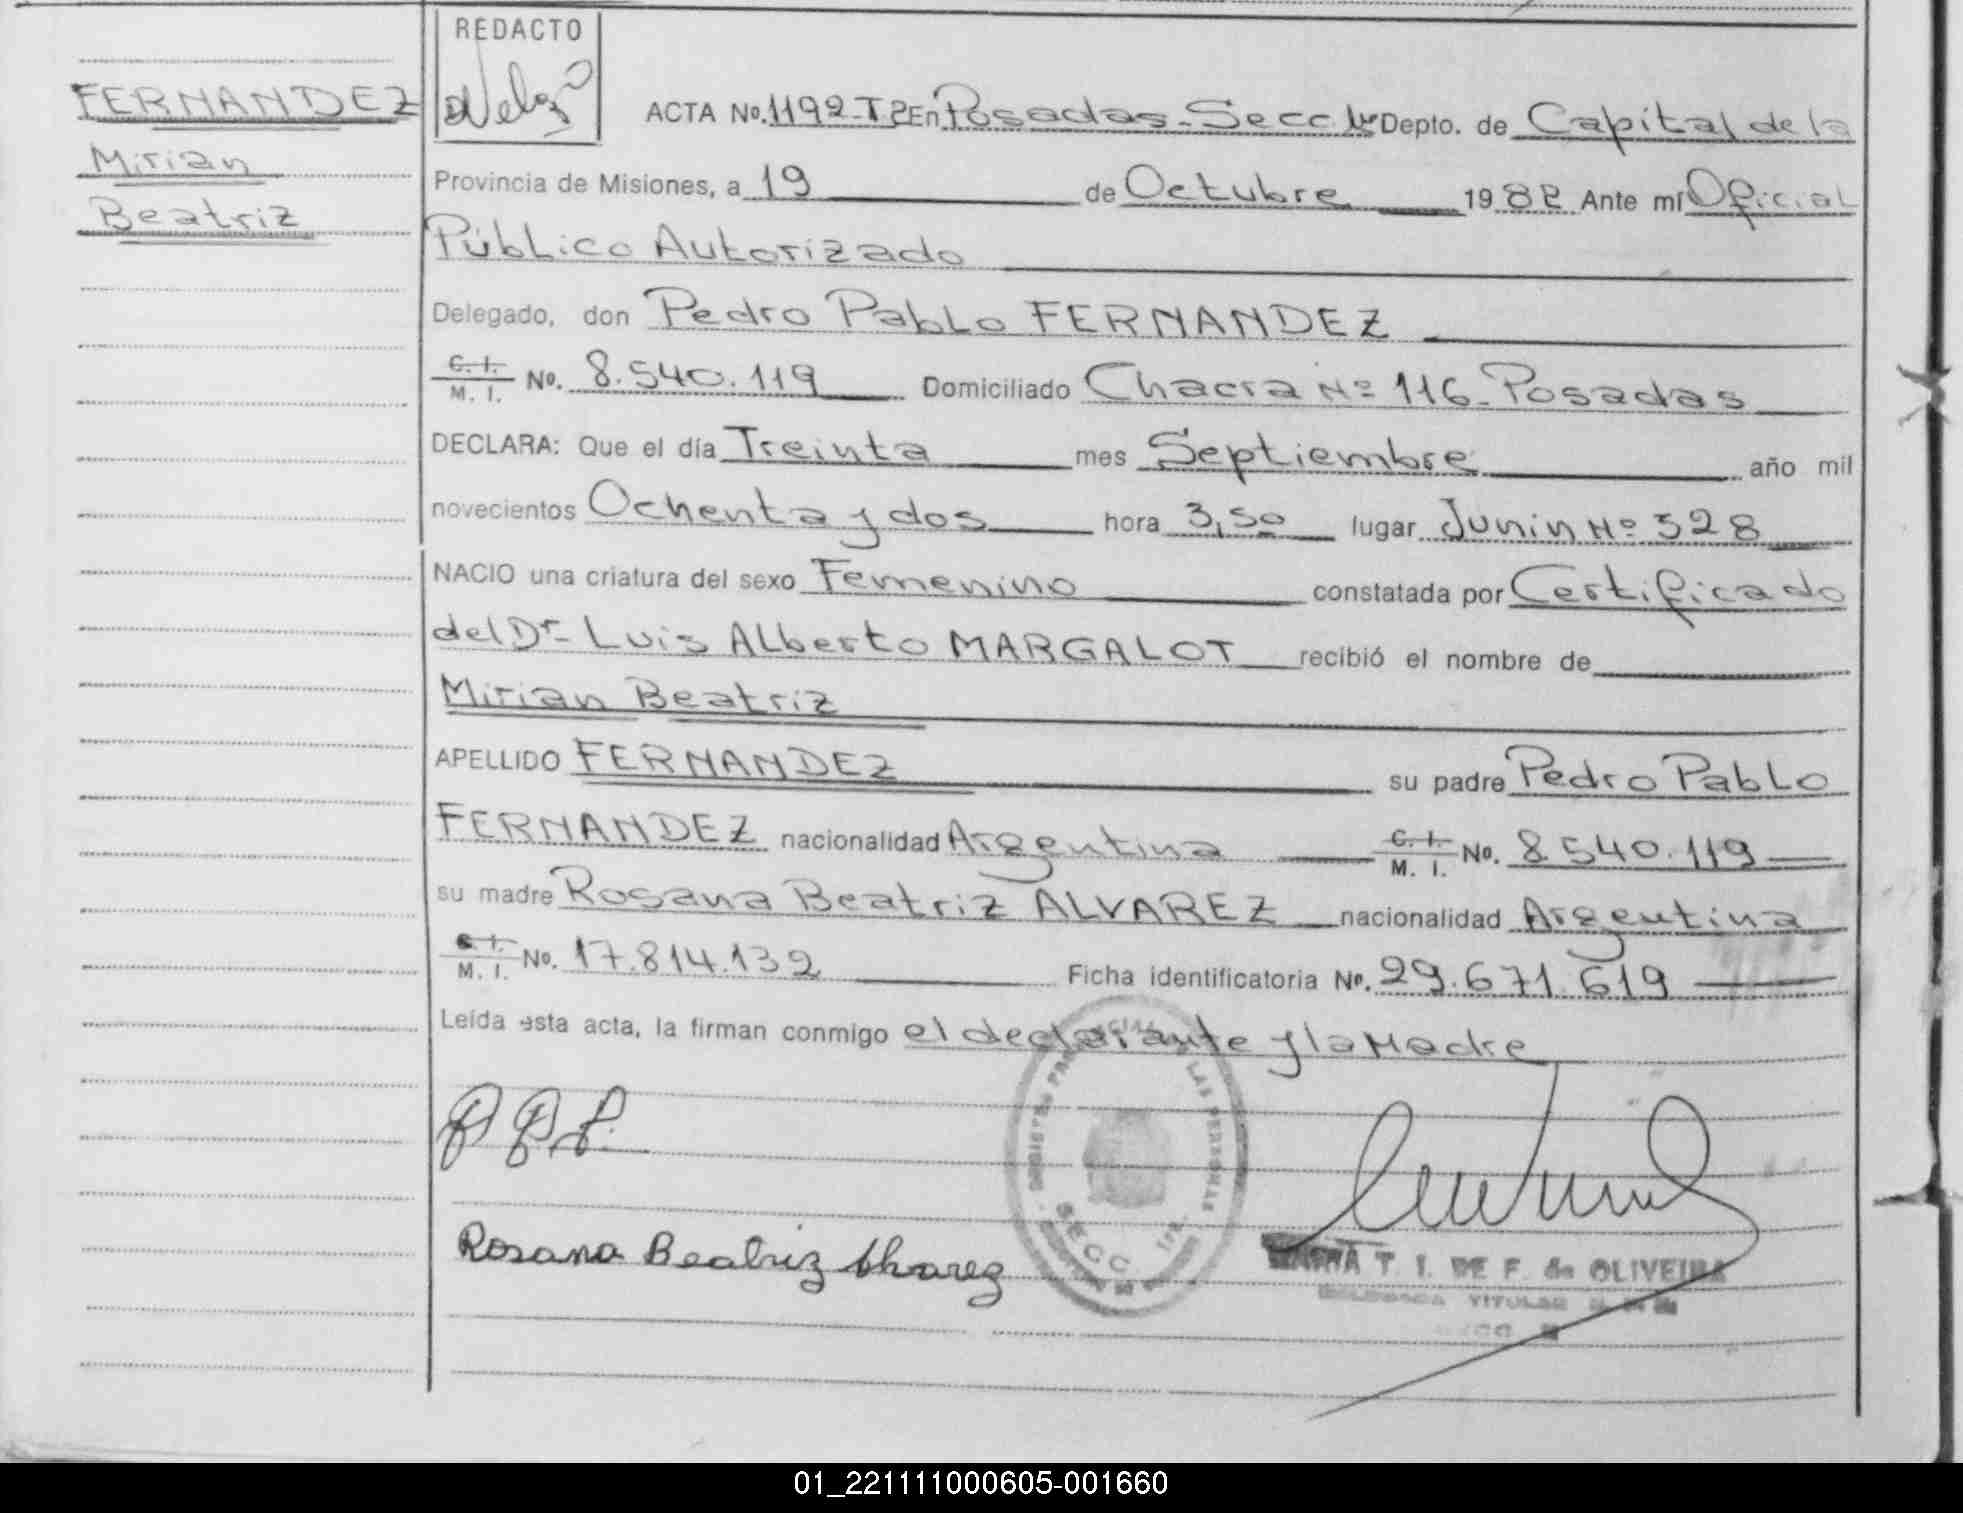 REDACTO
FERNANDEZ
Mirian
Beatriz
ACTA No. 1192-T2 En Posadas-Secc 1ra Depto. de Capital de la
Provincia de Misiones, a 19 de Octubre 1982 Ante mí Oficial
Público Autorizado
Delegado, don Pedro Pablo FERNANDEZ
C. I.
M. I. No. 8.540.119 Domiciliado Chacra Nº 116-Posadas
DECLARA: Que el día Treinta mes Septiembre año mil
novecientos Ochenta y dos hora 3,50 lugar Junin Nº 328
NACIO una criatura del sexo Femenino constatada por Certificado
del Dr- Luis Alberto MARGALOT recibió el nombre de
Mirian Beatriz
APELLIDO FERNANDEZ su padre Pedro Pablo
FERNANDEZ nacionalidad Argentina C. I. M. I. No. 8.540.119
su madre Rosana Beatriz ALVAREZ nacionalidad Argentina
C. I.
M. I. No. 17.814.132 Ficha identificatoria No. 29.671.619
Leída esta acta, la firman conmigo el declarante y la Madre
P P F.
Rosana Beatriz Alvarez
SECC 1ra.
LAS PERSONAS
T. I. DE F. de OLIVEIRA
TITULAR
01_221111000605-001660